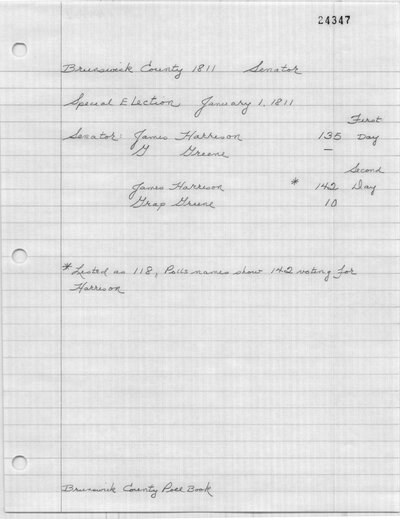 24347
Brunswick County 1811 Senator
Special Election January 1, 1811
First
Senator: James Harrison 135 Day
G Greene —
Second
James Harrison * 142 Day
Grap Greene 10
*Listed as 118, Polls names show 142 voting for
Harrison
Brunswick County Poll Book